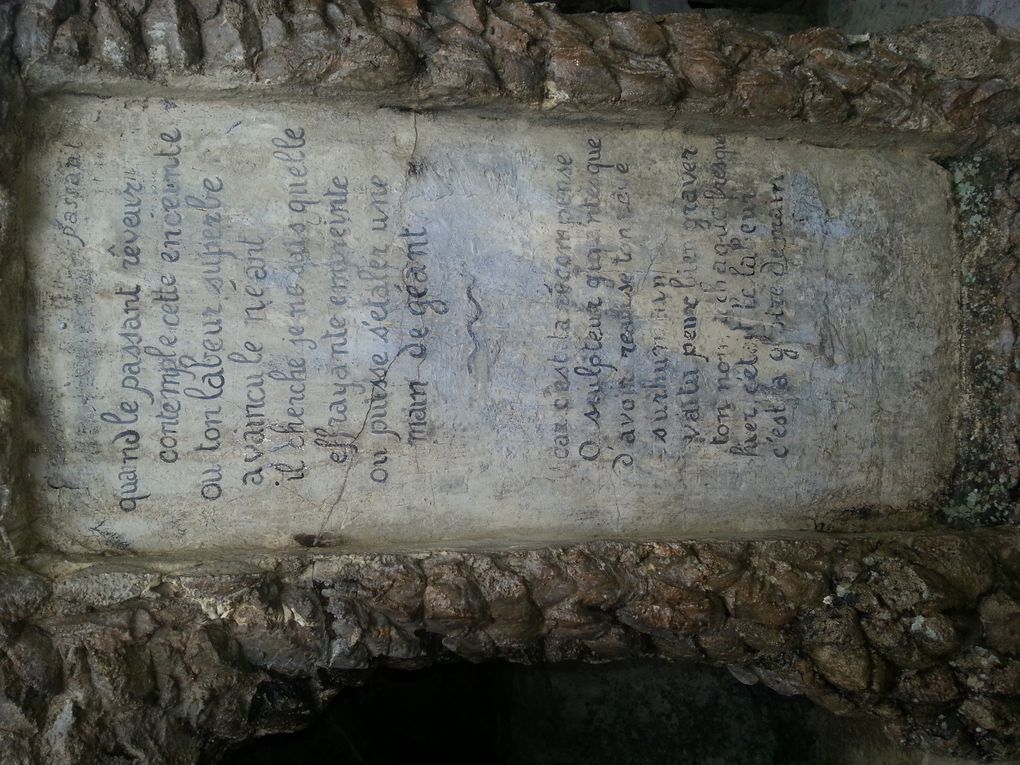 passant
quand le passant rêveur
contemple cette enceinte
ou ton labeur superbe
a vaincu le néant
il cherche je ne sais quelle
effrayante empreinte
ou puisse s'etaler une
main de géant
car c'est la récompense
O sculpteur gigantesque
d'avoir realisé ton rave
surhumain
vas tu peux bien graver
ton nom
hier, c'ét le labeur
c'est la demain